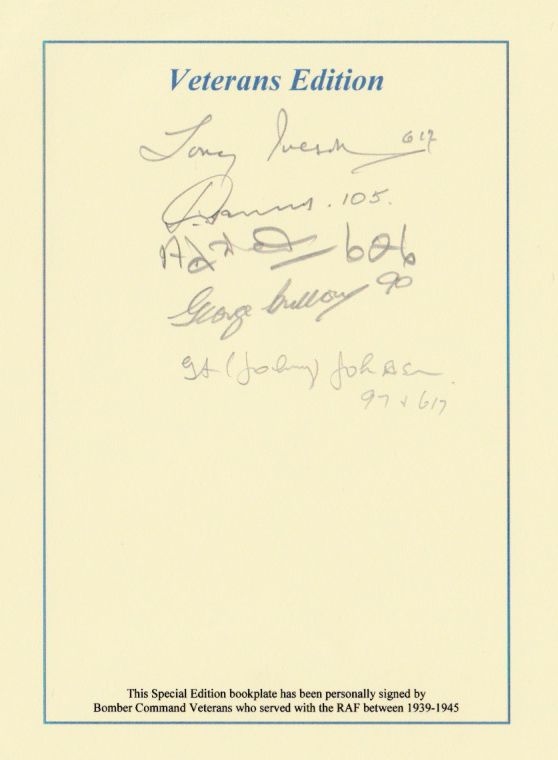 Veterans Edition
Tony Iveson 617
105.
626
George 90
GL (Johnny) Johnson
97 & 617
This Special Edition bookplate has been personally signed by
Bomber Command Veterans who served with the RAF between 1939-1945